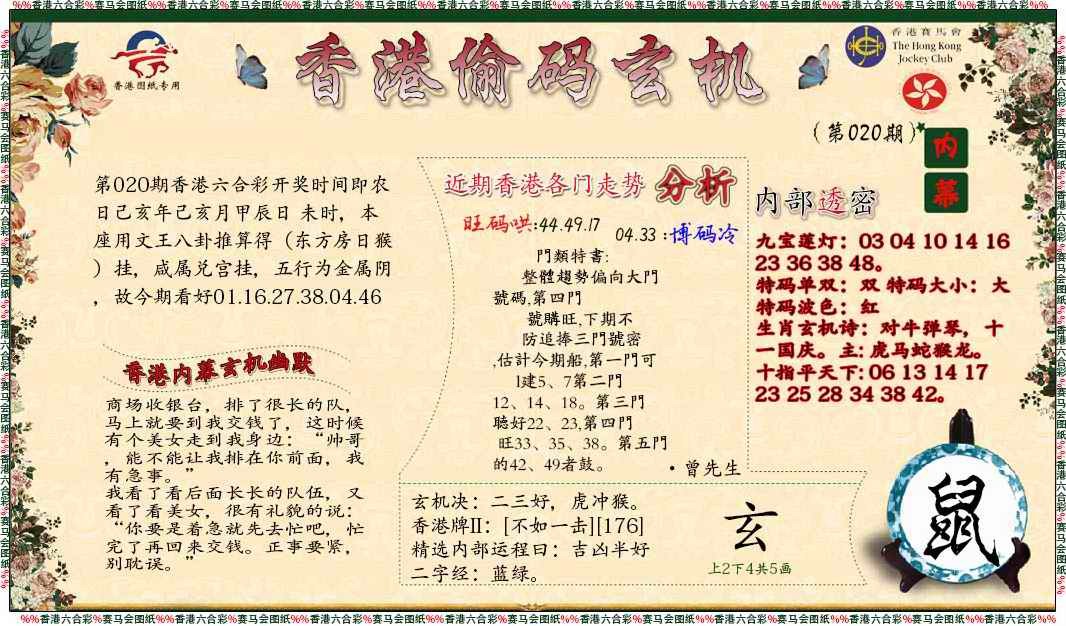 %%香港六合彩%赛马会图纸%%香港六合彩%赛马会图纸%%香港六合彩%赛马会图纸%%香港六合彩%赛马会图纸%%香港六合彩%赛马会图纸%%香港六合彩%赛马会图纸%%香港六合彩%%
香港图纸专用
香港偷码玄机
香港賽馬會
The Hong Kong
Jockey Club
(第020期)
内幕
第020期香港六合彩开奖时间即农
日己亥年己亥月甲辰日 未时，本
座用文王八卦推算得（东方房日猴
）挂，咸属兑宫挂，五行为金属阴
，故今期看好01.16.27.38.04.46
香港内幕玄机幽默
商场收银台，排了很长的队，
马上就要到我交钱了，这时候
有个美女走到我身边：“帅哥
，能不能让我排在你前面，我
有急事。”
我看了看后面长长的队伍，又
看了看美女，很有礼貌的说：
“你要是着急就先去忙吧，忙
完了再回来交钱。正事要紧，
别耽误。”
近期香港各门走势 分析
旺码哄:44.49.17
04.33 :博码冷
門類特書:
整體趨勢偏向大門
號碼,第四門
號購旺,下期不
防追捧三門號密
,估計今期船,第一門可
1建5、7第二門
12、14、18。第三門
聽好22、23,第四門
旺33、35、38。第五門
的42、49者鼓。
·曾先生
内部透密
九宝莲灯：03 04 10 14 16
23 36 38 48。
特码单双：双 特码大小：大
特码波色：红
生肖玄机诗：对牛弹琴，十
一国庆。主: 虎马蛇猴龙。
十指平天下: 06 13 14 17
23 25 28 34 38 42。
玄机决：二三好，虎冲猴。
香港牌II：[不如一击][176]
精选内部运程曰：吉凶半好
二字经：蓝绿。
玄
上2下4共5画
鼠
%%香港六合彩%赛马会图纸%%香港六合彩%赛马会图纸%%香港六合彩%赛马会图纸%%香港六合彩%赛马会图纸%%香港六合彩%赛马会图纸%%香港六合彩%赛马会图纸%%香港六合彩%%